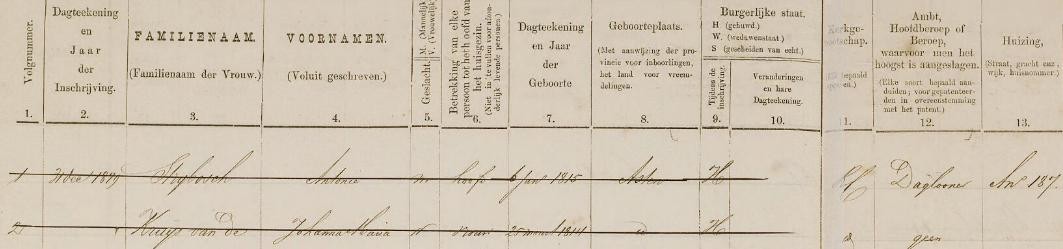 Volgnummer.
Dagteekening
en
Jaar
der
Inschrijving.
FAMILIENAAM.
(Familienaam der Vrouw.)
VOORNAMEN.
(Voluit geschreven.)
Geslacht. M. (Mannelijk) V. (Vrouwelijk)
Betrekking van elke
persoon tot het hoofd van
het huisgezin.
(Niet in te vullen voor afzon-
derlijk levende personen.)
Dagteekening
en Jaar
der
Geboorte
Geboorteplaats.
(Met aanwijzing der pro-
vincie voor inboorlingen,
het land voor vreem-
delingen.
Burgerlijke staat.
H (gehuwd.)
W. (weduwenstaat.)
S (gescheiden van echt.)
Tijdens de
inschrijving.
Veranderingen
en hare
Dagteekening.
Kerkge-
nootschap.
Ambt,
Hoofdberoep of
Beroep,
waarvoor men het
hoogst is aangeslagen.
(Elke soort bepaald aan-
duiden; voor gepatenteer-
den in overeenstemming
met het patent.)
Huizing,
(Straat, gracht enz,
wijk, huisnummer.)
1. 2. 3. 4. 5. 6. 7. 8. 9. 10. 11. 12. 13.
1 31 dec 1879 Antonie m hoofd 6 jan 1815 Asten H Daglooner An 187.
2 Kuijs van de Johanna Maria v vrouw 25 maart 1814 id H geen